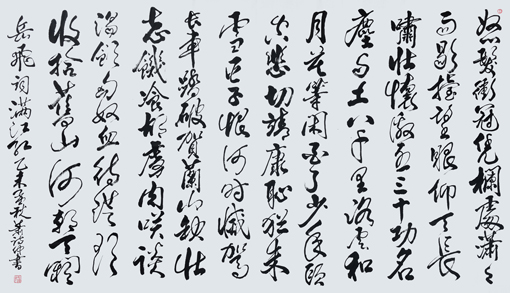 怒髮衝冠凭欄處瀟々
雨歇抬望眼仰天長
嘯壯懷激烈三十功名
塵与土八千里路雲和
月莫等閑白了少年頭
空悲切靖康恥猶未
雪臣子恨何時滅駕
長車踏破賀蘭山缺壯
志饑餐胡虜肉笑談
渴飲匈奴血待從頭
收拾舊山河朝天闕
岳飛詞滿江紅乙未年秋書